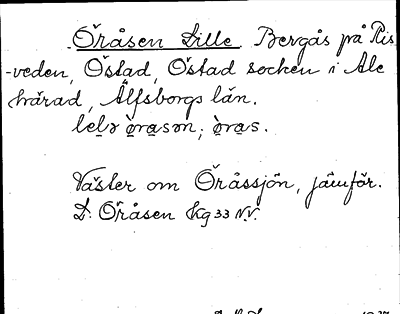 Öråsen Lille Bergås på Ris
-veden, Östad, Östad socken i Ale
härad, Älfsborgs län.
Väster om Öråssjön, jämför.
L. Öråsen Kg 33 N.V.